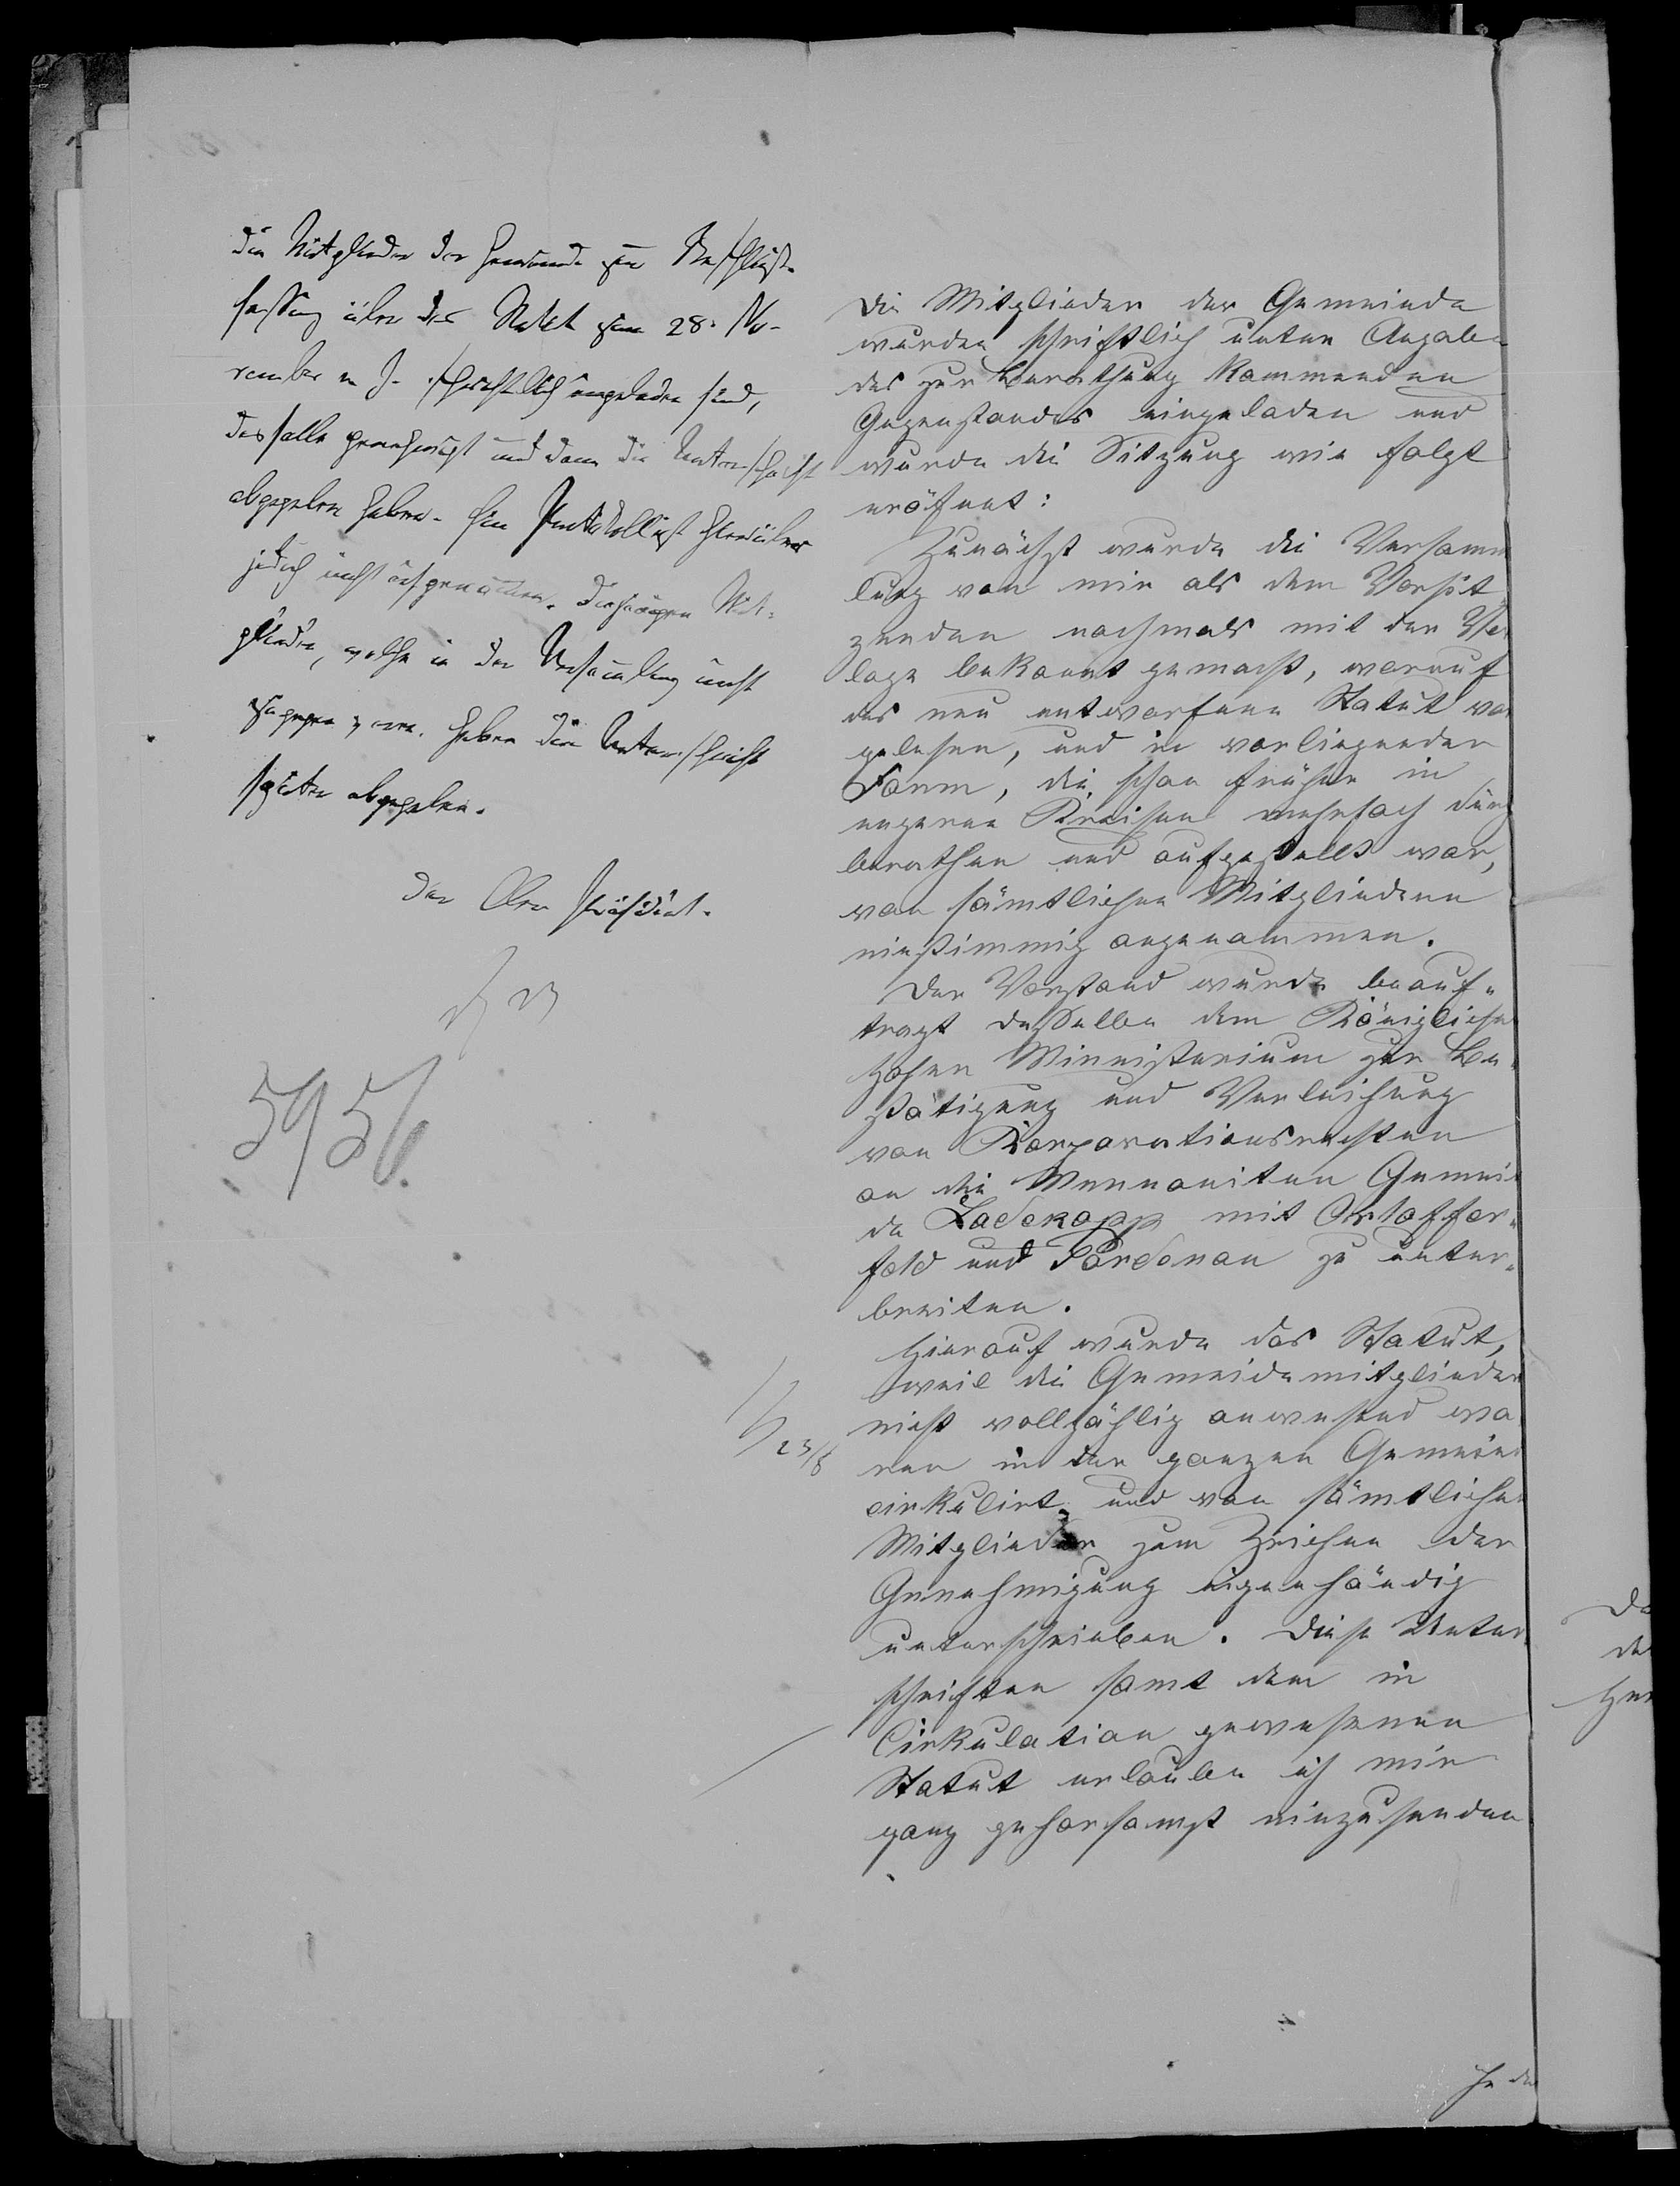 die Mitglieder der Gemeinde zur Beschluß-
fassung über das Statut zum 28. No-
vember v. J. schriftlich eingeladen sind,
dasselbe genehmigt und dann die Unterschrift
abgegeben haben. Ein Protokoll ist hierüber
jedoch nicht aufgenommen. Diejenigen Mit-
glieder, welche in der Versammlung nicht
zugegen waren, haben die Unterschrift
später abgegeben.
Der Ober Präsident.
5956.
Die Mitglieder der Gemeinde
wurden schriftlich unter Angabe
des zur Berathung kommenden
Gegenstandes eingeladen und
wurde die Sitzung wie folgt
eröfnet:
Zunächst wurde die Versamm
lung von mir als dem Vorsit-
zenden nochmals mit der Vor
lage bekannt gemacht, worauf
das neu entworfene Statut vor
gelesen, und in vorliegender
Form, die schon früher in
engeren Kreisen mehrfach durch
berathen und aufgestellt war,
von sämtlichen Mitgliedern
einstimmig angenommen.
Der Vorstand wurde beauf-
tragt dasselbe dem Königlichen
hohen Ministerium zur Be-
stätigung und Verleihung
von Korporationsrechten
an die Mennoniten Gemein
de Ladekopp mit Orloffer-
feld und Pordenau zu unter-
breiten.
Hierauf wurde das Statut,
weil die Gemeidemitglieder
nicht vollzählig anwesend wa
ren in der ganzen Gemein
cirkulirt, und von sämtlichen
Mitglieder zum Zeichen der
Genehmigung eigenhändig
unterschrieben. Diese Unter
schriften samt dem in
Cirkulation gewesenen
Statut erlaube ich mir
ganz gehorsamst einzusenden
23/8